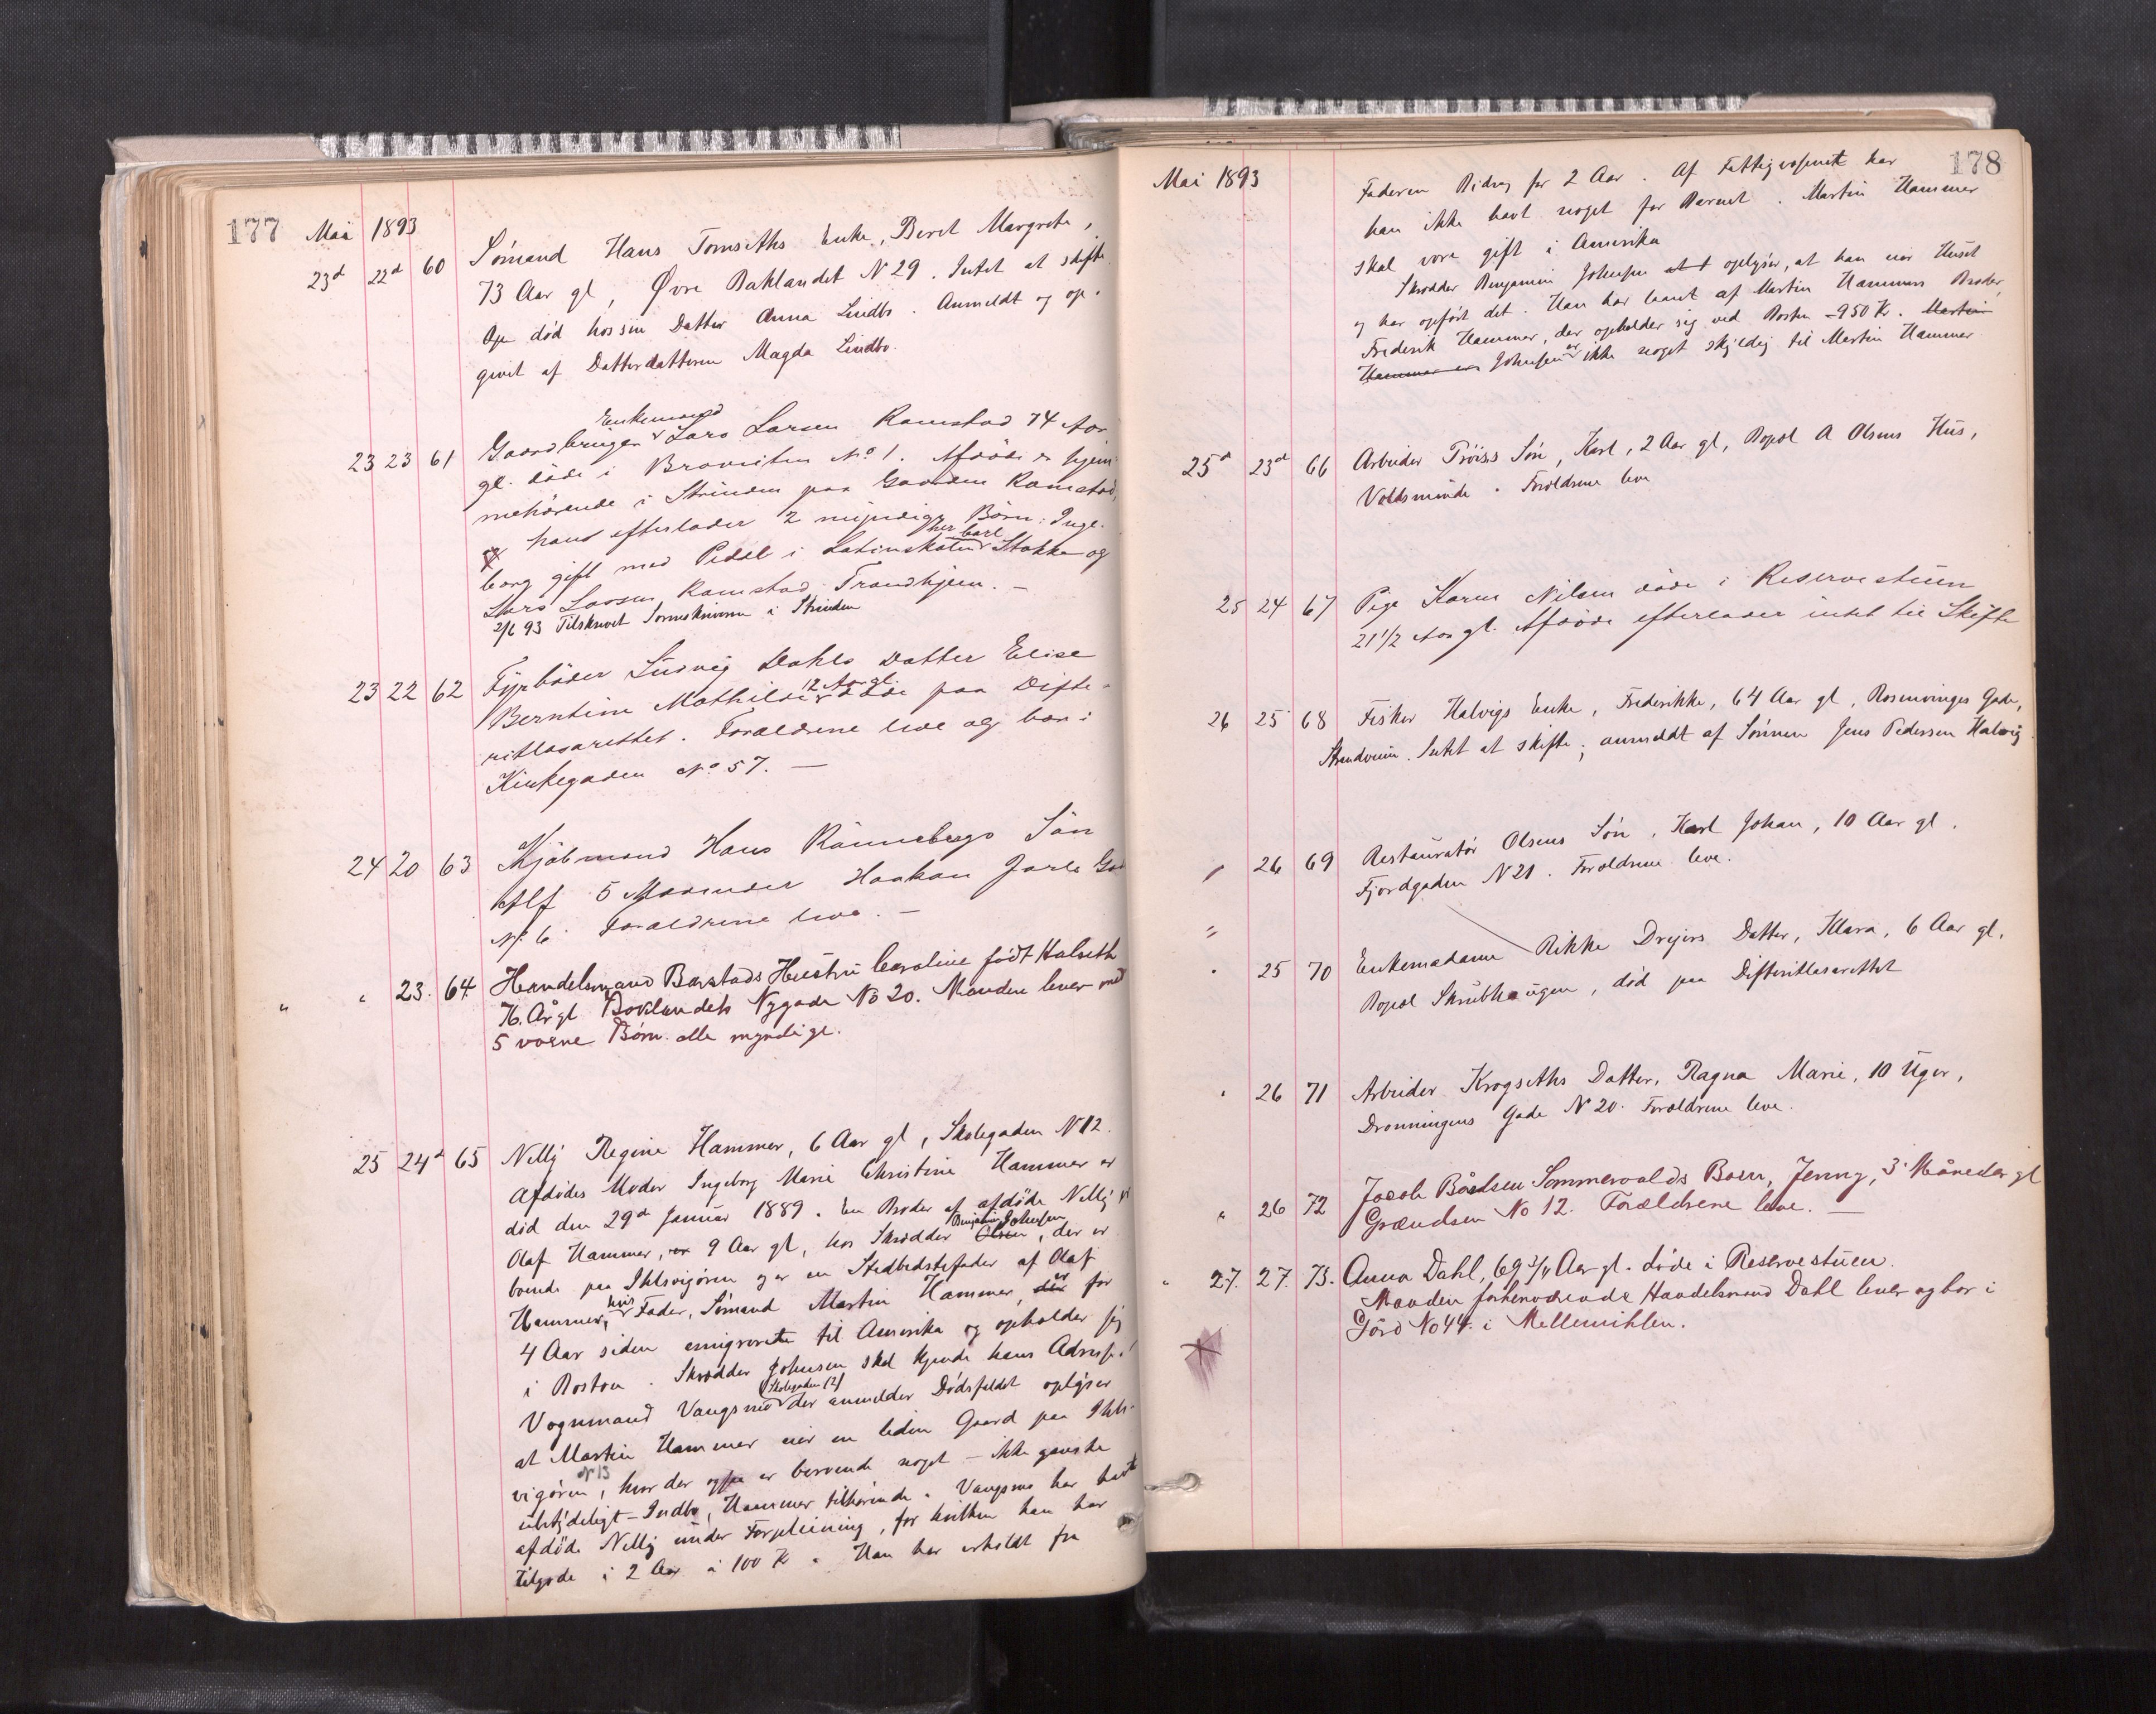 177 Mai 1893
23d 22d 60 Sømand Hans Tomseths Enke, Beret Margrete,
73 Aar gl, Øvre Baklandet N 29. Intet at skifte.
død hos sin Datter Anna Lindbo. Anmeldt og op-
givet af Datterdatteren Magda Lindbo.
Enkemand
23 23 61 Gaardbruger Lars Larsen Ramstad 74 Aar
gl. døde i Bromstien No 1. Afdöde er hjem-
mehörende i Strinden paa Gaarden Ramstad,
hans efterlader 2 myndige Börn: Inge-
her Carl
borg gift med Pedel i Latinskolen Stokke og
Lars Larsen Ramstad Trondhjem. —
2/6 93 Tilskrevet Sorenskriveren i Strinden
23 22 62 Fyrböder Ludvig Dahls Datter Elise
12 Aar gl.
Berntine Mathilde döde paa Difte-
ritlasarettet. Forældrene leve og bor i
Kirkegaden No 57. —
24 20 63 Kjöbmand Hans Rönnebergs Sön
Alf 5 Maaneder Haakon Jarls Gad
No 6. Forældrene leve. —
" " 23. 64. Handelsmand Barstads Hustru Caroline født Halseth
76. År gl. Baklandets Nygade No 20. Manden lever med
5 voxne Børn. alle myndige.
25 24d 65 Nelly Regine Hammer, 6 Aar gl, Skolegaden N 12.
Afdødes Moder Ingeborg Marie Christine Hammer er
død den 29d Januar 1889. En Broder af afdøde Nelly
Benjamin Johnsen
Olaf Hammer, er 9 Aar gl, hos Skrædder Olsen, der er
boende paa Ihlsvigøren og er en Stedbedstefader af Olaf
hvis er
Hammer, Fader, Sømand Martin Hammer, der for
4 Aar siden emigrerete til Amerika og opholder sig
i Boston. Skrædder Johnsen skal kjende hans Adresse!
(Skolegaden 12)
Vognmand Vangsmo der anmelder Dødsfaldet oplyser
at Martin Hammer eier en liden Gaard paa Ihls-
N 13
vigøren, hvor der ogsaa er beroende noget – ikke ganske
ubetydeligt – Indbo, Hammer tilhørende. Vangsmo har havt
afdøde Nelly under Forpleining, for hvilken han har
tilgode i 2 Aar à 100 Kr. Han har erholdt fra
178
Mai 1893
Faderen Bidrag for 2 Aar. Af Fattigvæsenet har
han ikke havt noget for Barnet. Martin Hammer
skal være gift i Amerika
Skrædder Benjamin Johnsen oplyser, at han eier Huset
og har opført det. Han har laant af Martin Hammers Broder,
Frederik Hammer, der opholder sig ved Boston – 950 Kr. Martin
er
Hammer er Johnsen ikke noget skyldig til Martin Hammer
25d 23d 66 Arbeider Trøiss Søn, Karl, 2 Aar gl, Bopæl A Olsens Hus,
Voldsminde. Forældrene leve
25 24 67 Pige Karen Nilsen döde i Reservestuen
21 1/2 Aar gl. Afdöde efterlader intet til Skifte
26 25 68 Fisker Halvigs Enke, Frederikke, 64 Aar gl, Rosenvinges Gade,
Strandveien. Intet at skifte; anmeldt af Sønnen Jens Pedersen Halvig.
" 26 69 Restauratør Olsens Søn, Karl Johan, 10 Aar gl.
Fjordgaden N 21. Forældrene leve.
" 25 70 Enkemadame Rikke Dreiers Datter, Klara, 6 Aar gl,
Bopæl Skrubhaugen, død paa Difteritlasarettet
" 26 71 Arbeider Krogseths Datter, Ragna Marie, 10 Uger,
Dronningens Gade N 20. Forældrene leve.
" 26 72 Jacob Bårdsen Sommervolds Barn, Jenny, 3 Måneder gl
Grændsen No 12. Forældrene leve. —
" 27. 27. 73. Anna Dahl, 69 3/4 Aar gl. døde i Reservestuen.
Manden forhenværende Handelsmand Dahl lever og bor i
Gård No 44. i Mellemihlen.